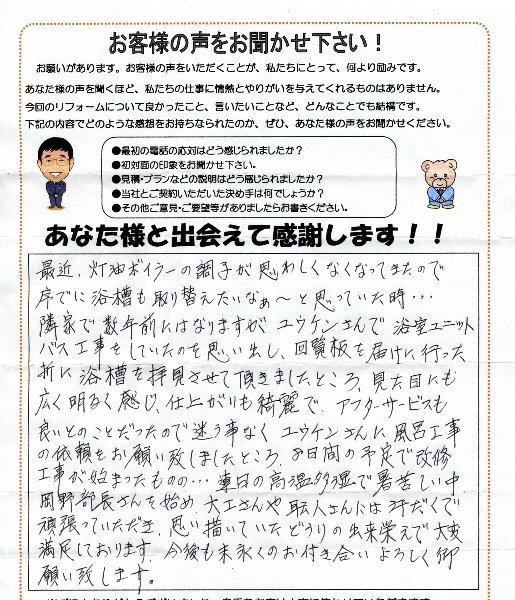 お客様の声をお聞かせ下さい！
お願いがあります。お客様の声をいただくことが、私たちにとって、何より励みです。
あなた様の声を聞くほど、私たちの仕事に情熱とやりがいを与えてくれるものはありません。
今回のリフォームについて良かったこと、言いたいことなど、どんなことでも結構です。
下記の内容でどのような感想をお持ちなられたのか、ぜひ、あなた様の声をお聞かせください。
●最初の電話の応対はどう感じられましたか？
●初対面の印象をお聞かせ下さい。
●見積・プランなどの説明はどう感じられましたか？
●当社とご契約いただいた決め手は何でしょうか？
●その他ご意見・ご要望等がありましたらお書きください。
あなた様と出会えて感謝します！！
最近、灯油ボイラーの調子が思わしくなくなってきたので
序でに浴槽も取り替えたいなぁ～と思っていた時…
隣家で数年前にはなりますが ユウケンさんで 浴室ユニット
バス工事をしていたのを思い出し、回覧板を届けに行った
折に 浴槽を拝見させて頂きましたところ、見た目にも
広く明るく感じ、仕上がりも綺麗で、アフターサービスも
良いとのことだったので迷う事なく ユウケンさんに風呂工事
の依頼をお願い致しましたところ、8日間の予定で改修
工事が始まったものの… 連日の高温多湿で暑苦しい中
岡野部長さんを始め、大工さんや職人さんには汗だくで
頑張っていただき、思い描いていたどうりの出来栄えで大変
満足しております。今後も末永くのお付き合い よろしく御
願い致します。